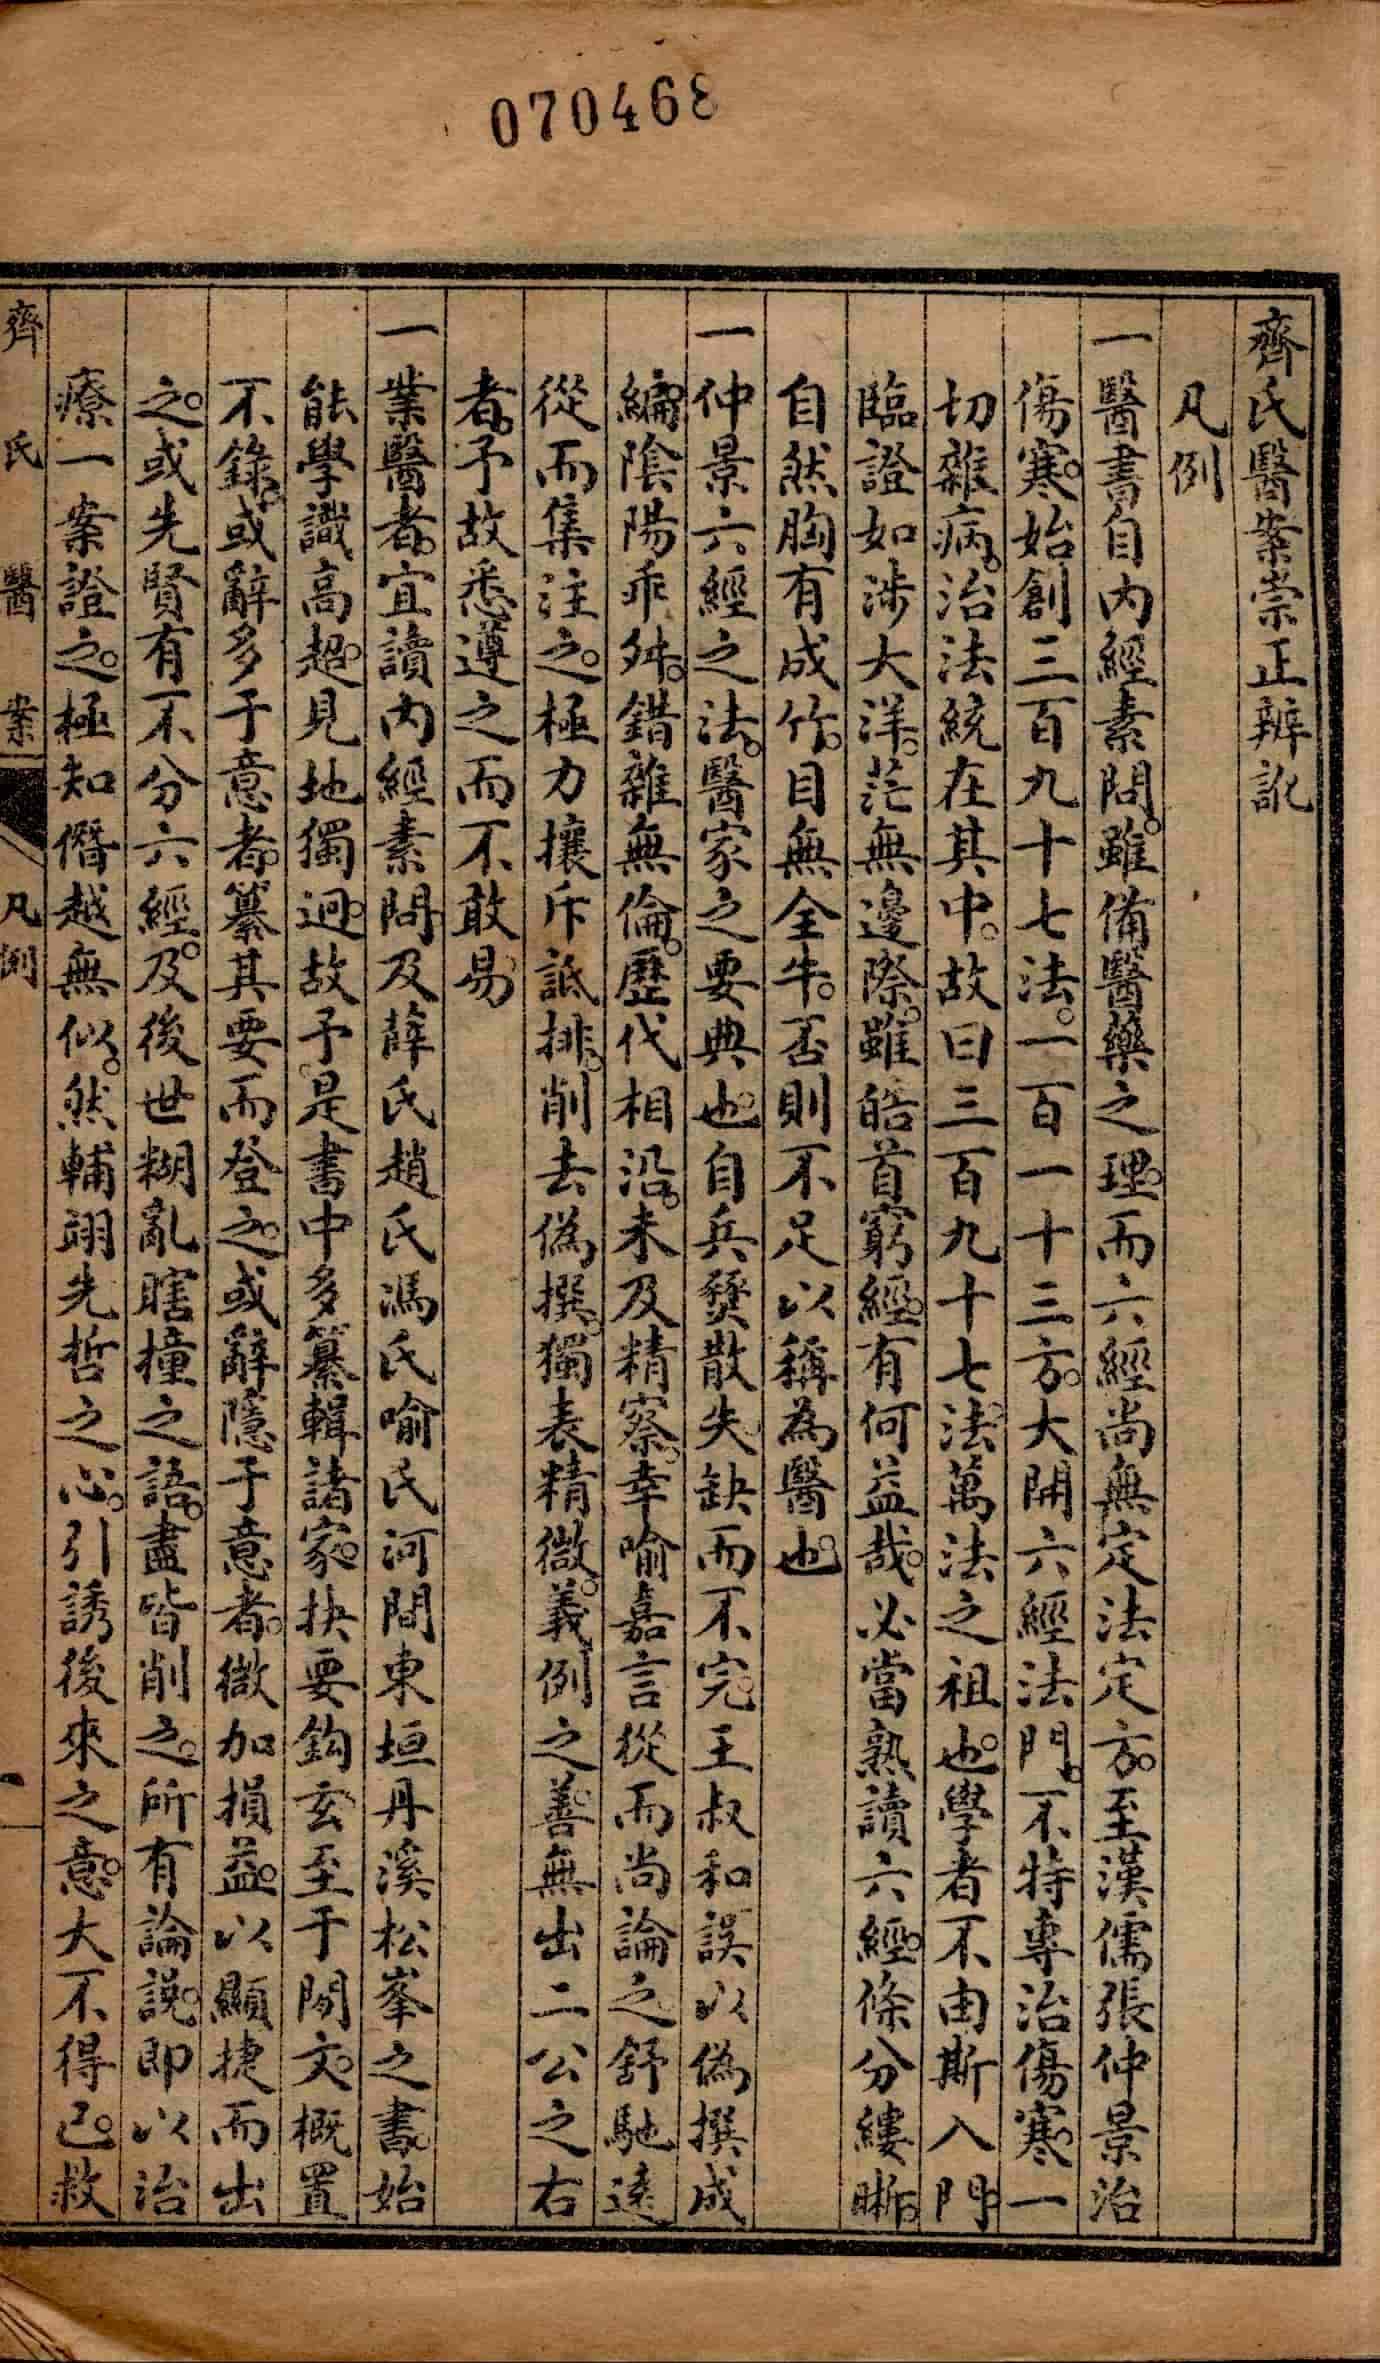 070468
齊氏醫案崇正辨訛
凡例
一醫書自內經素問。雖備醫藥之理。而六經尚無定法定方。至漢儒張仲景治
傷寒。始創三百九十七法。一百一十三方。大開六經法門。不特專治傷寒。一
切雜病。治法統在其中。故曰三百九十七法。萬法之祖也。學者不由斯入門。
臨證如涉大洋。茫無邊際。雖皓首窮經。有何益哉。必當熟讀六經。條分縷晰。
自然胸有成竹。目無全牛。否則不足以稱為醫也。
一仲景六經之法。醫家之要典也。自兵燹散失。缺而不完。王叔和誤以偽撰成
編。陰陽乖舛。錯雜無倫。歷代相沿。未及精察。幸喻嘉言從而尚論之。舒馳遠
從而集注之。極力攘斥詆排。削去偽撰。獨表精微。義例之善。無出二公之右
者。予故悉遵之而不敢易。
一業醫者。宜讀內經素問。及薛氏趙氏馮氏喻氏河間東垣丹溪松峯之書。始
能學識高超。見地獨迥。故予是書中多纂輯諸家。抉要鈎玄。至于閒文。概置
不錄。或辭多于意者。纂其要而登之。或辭隱于意者。微加損益。以顯捷而出
之。或先賢有不分六經。及後世糊亂瞎撞之語。盡皆削之。所有論說。即以治
療一案證之。極知僭越無似。然輔翊先哲之心。引誘後來之意。大不得已。救
齊氏醫案 凡例 一